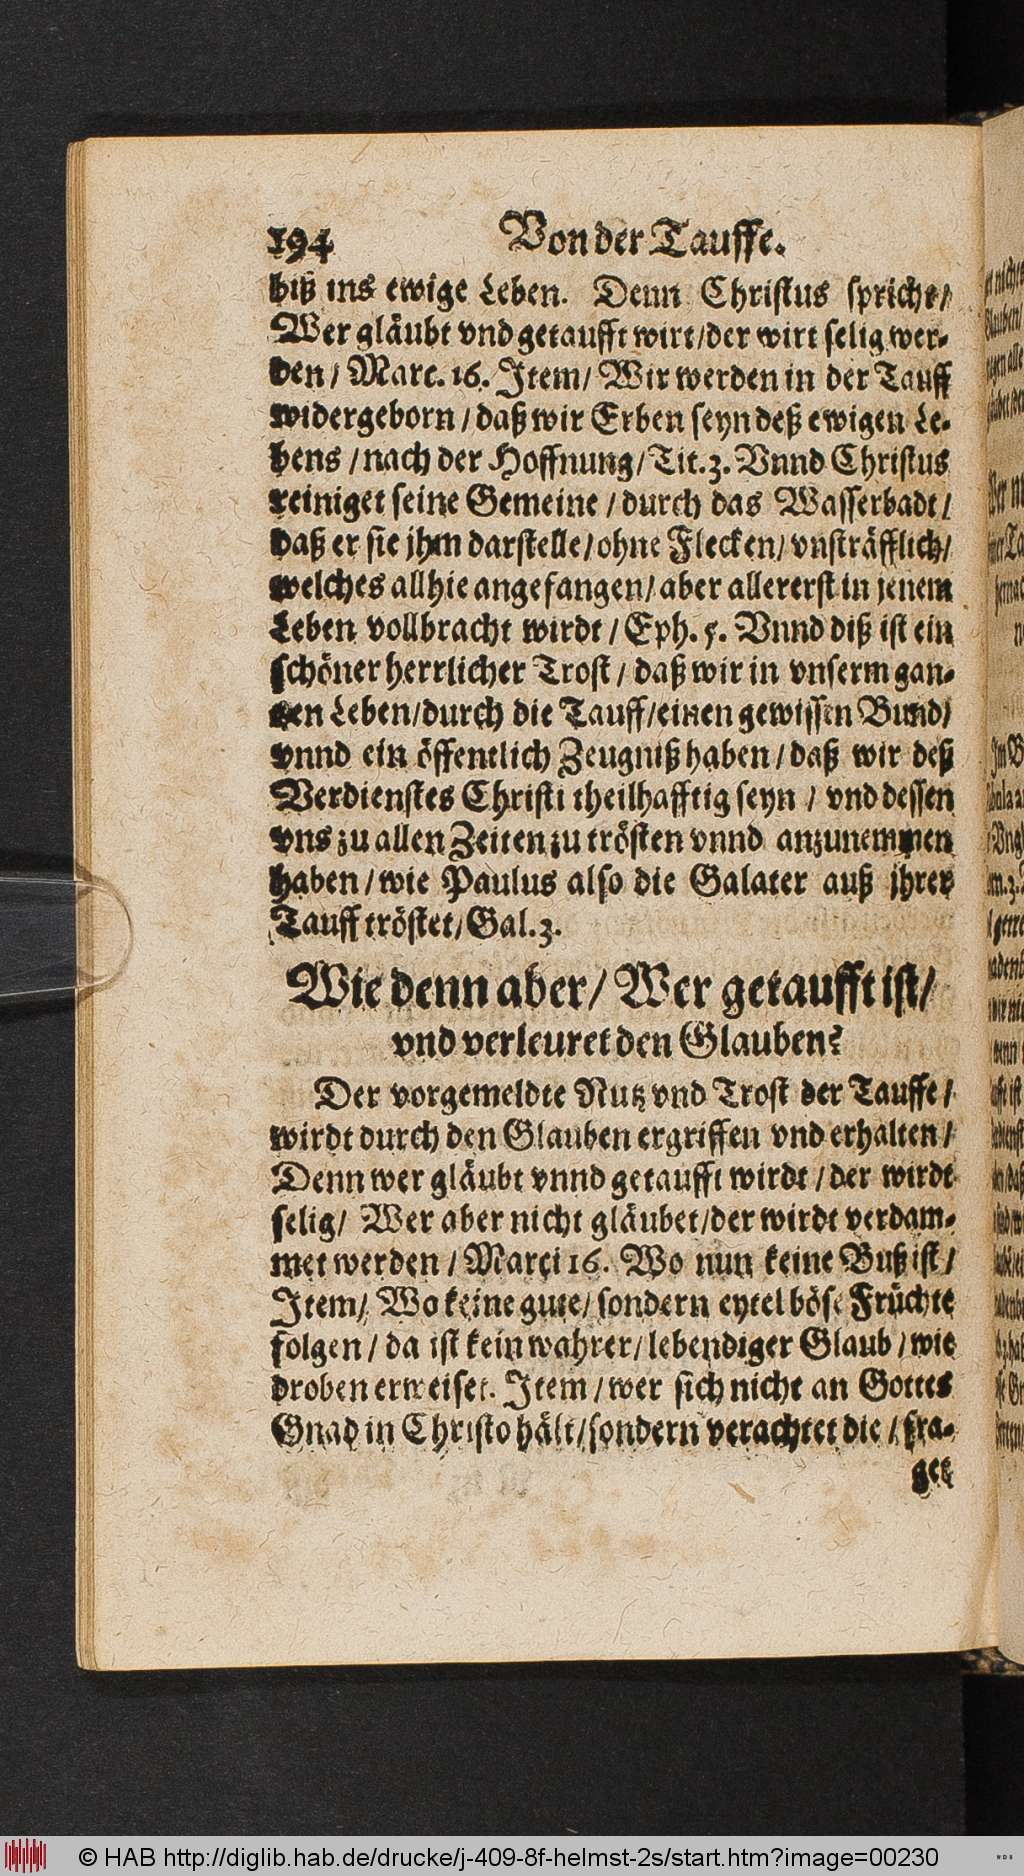 194 Von der Tauffe.
biß ins ewige Leben. Denn Christus spricht/
Wer gläubt vnd getaufft wirt/der wirt selig wer-
den/ Marc. 16. Item/ Wir werden in der Tauff
widergeborn/daß wir Erben seyn deß ewigen Le-
bens/nach der Hoffnung/Tit. 3. Vnnd Christus
reiniget seine Gemeine/durch das Wasserbadt/
daß er sie jhm darstelle/ohne Flecken/vnsträfflich/
welches allhie angefangen/aber allererst in jenem
Leben vollbracht wirdt/Eph. 5. Vnnd diß ist ein
schöner herrlicher Trost/daß wir in vnserm gan-
tzen Leben/durch die Tauff/einen gewissen Bund/
vnnd ein öffentlich Zeugniß haben/daß wir deß
Verdienstes Christi theilhafftig seyn/vnd dessen
vns zu allen Zeiten zu trösten vnnd anzunemmen
haben/wie Paulus also die Galater auß jhrer
Tauff tröstet/Gal. 3.
Wie denn aber/Wer getaufft ist/
vnd verleuret den Glauben?
Der vorgemeldte Nutz vnd Trost der Tauffe/
wirdt durch den Glauben ergriffen vnd erhalten/
Denn wer gläubt vnnd getaufft wirdt/der wirdt
selig/ Wer aber nicht gläubet/der wirdt verdam-
met werden/Marci 16. Wo nun keine Buß ist/
Item/ Wo keine gute/sondern eytel böse Früchte
folgen/da ist kein wahrer/lebendiger Glaub/wie
droben erweiset. Item/wer sich nicht an Gottes
Gnad in Christo hält/sondern verachtet die/fra-
get
© HAB http://diglib.hab.de/drucke/j-409-8f-helmst-2s/start.htm?image=00230